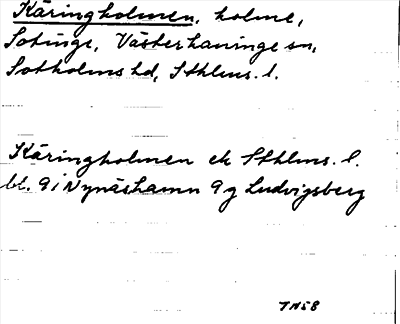 Käringholmen, holme,
Sotinge, Västerhaninge sn,
Sotholms hd, Sthlms. l.
Käringholmen ek Sthlms. l.
bl. 9i Nynäshamn 9g Ludvigsberg
7N58